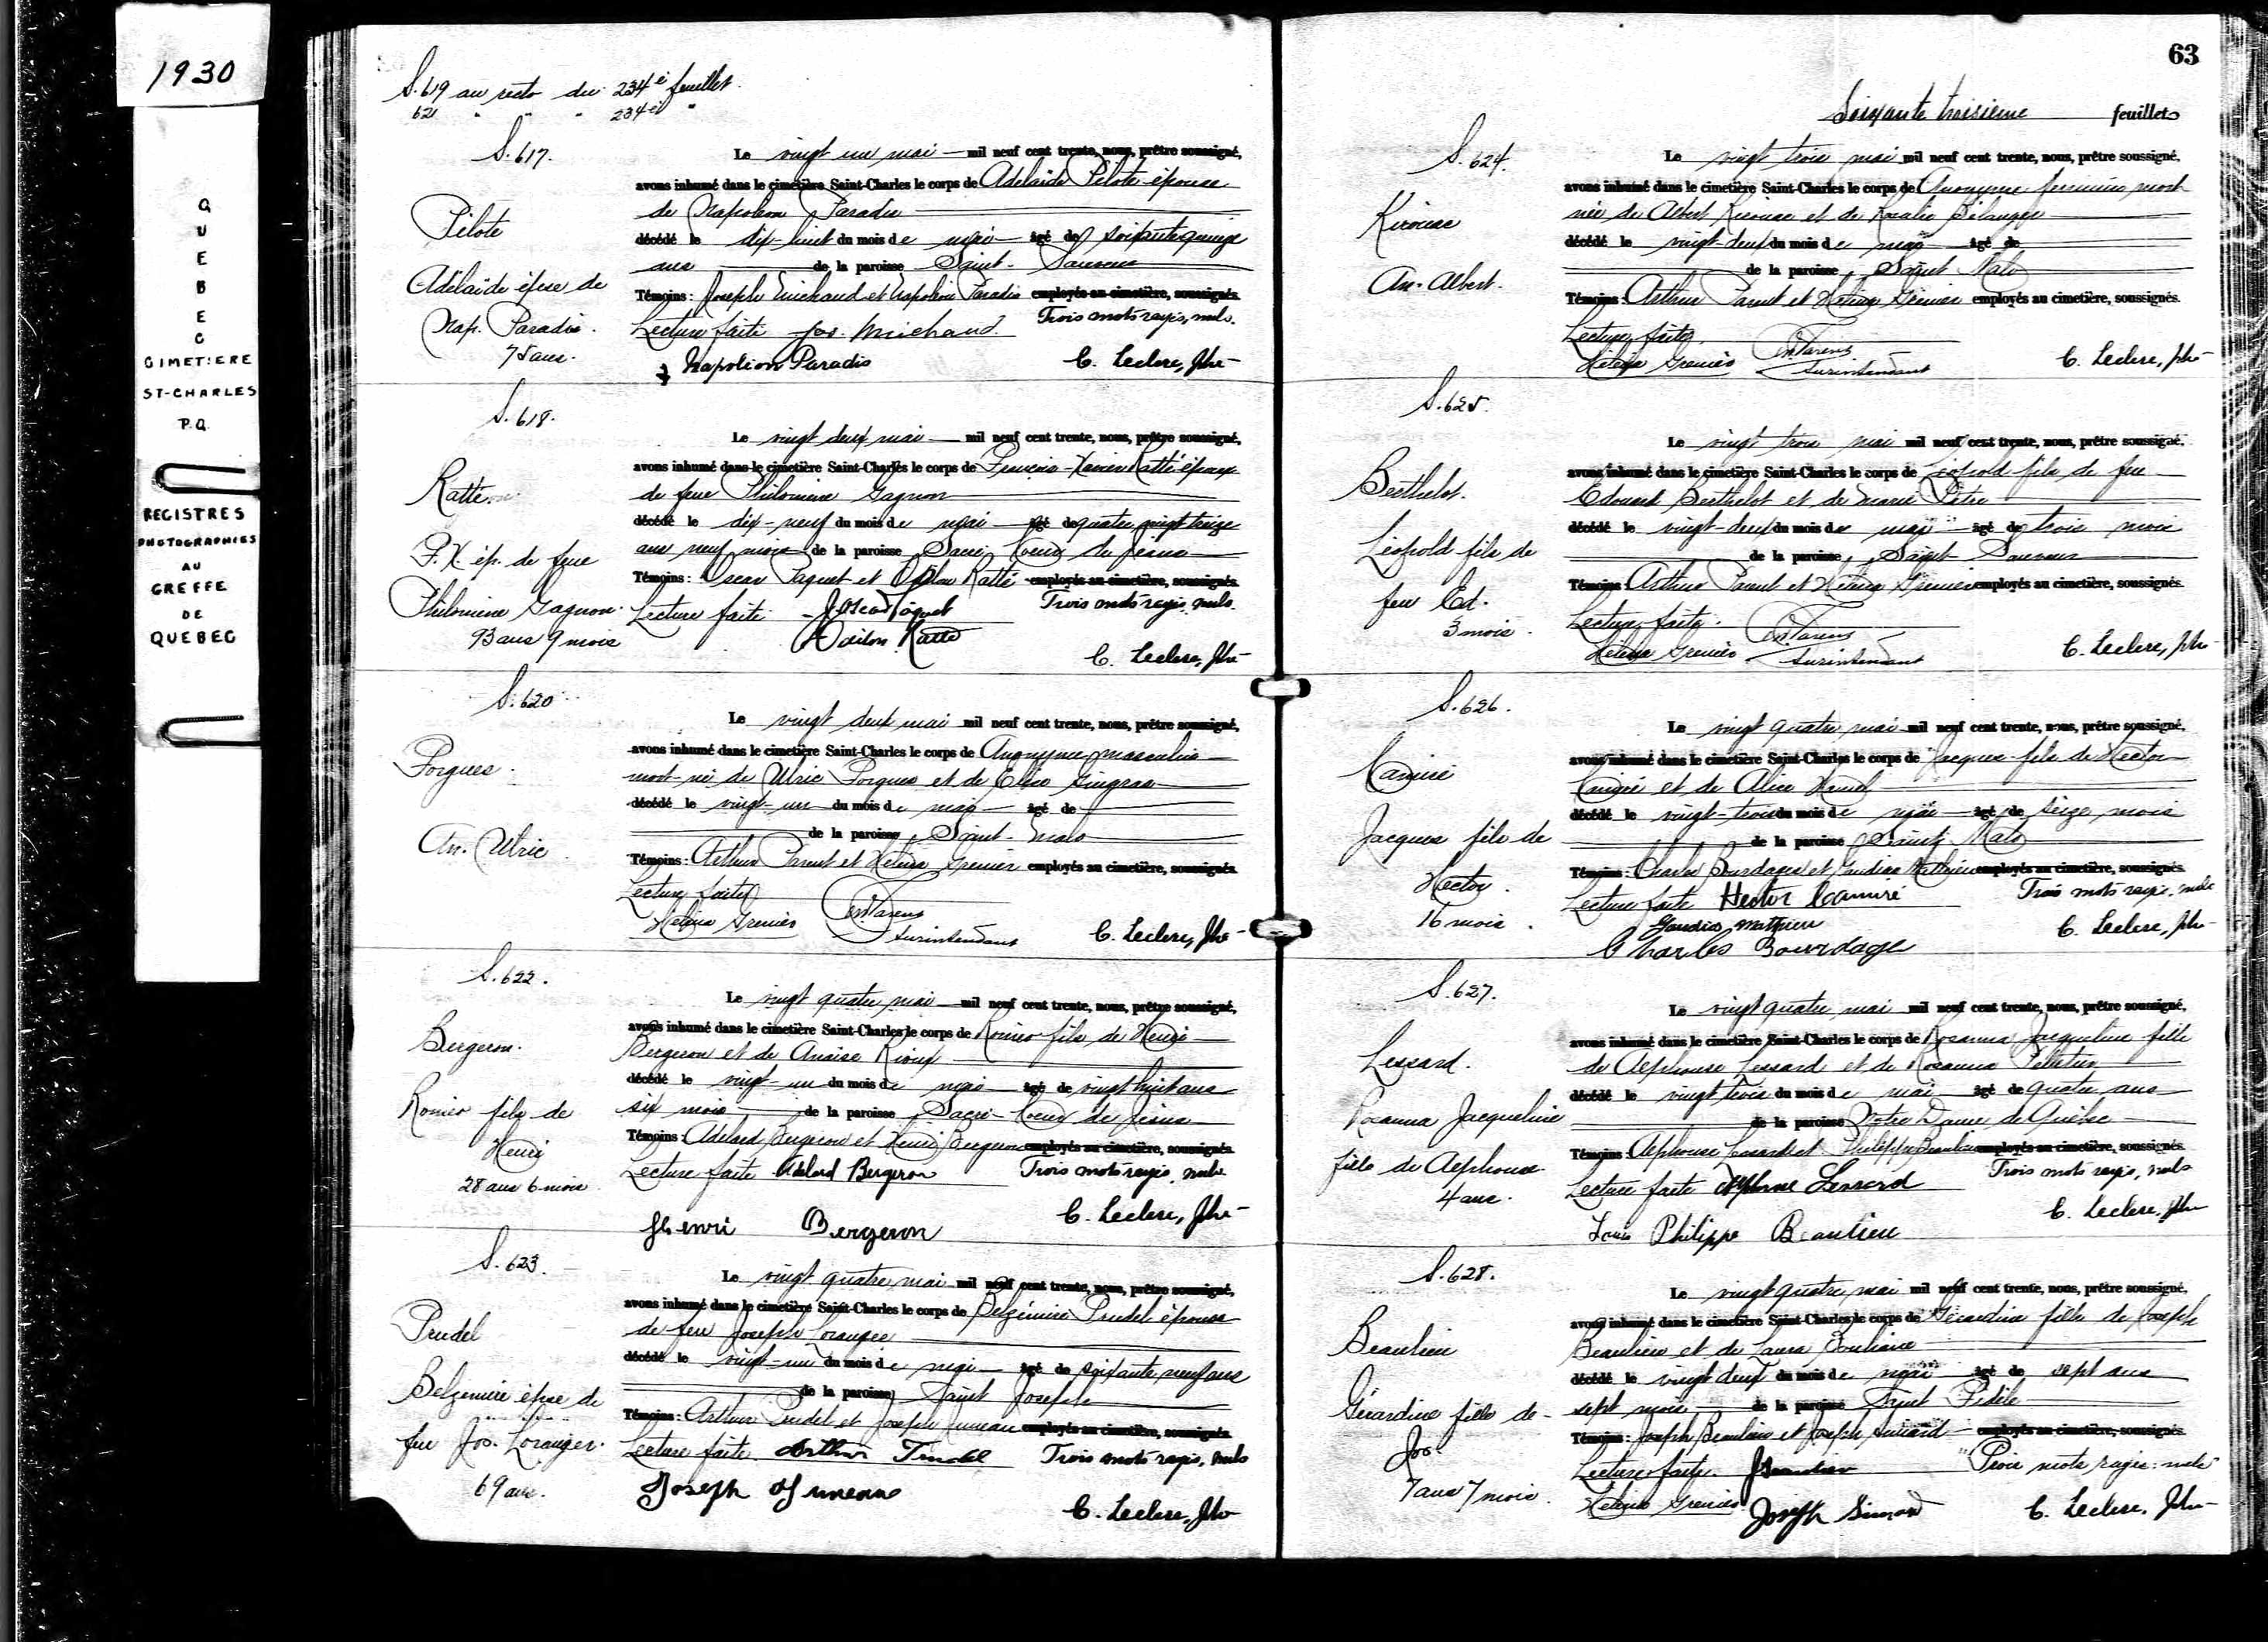 1930
QUEBEC
CIMETIERE
ST-CHARLES
P.Q.
REGISTRES
PHOTOGRAPHIES
AU
GREFFE
DE
QUEBEC
S. 619 au recto du 234e feuillet
621 " " " 234e "
S. 617.
Pilote
Adélaïde épse de
Nap. Paradis.
75 ans.
Le vingt un mai mil neuf cent trente, nous, prêtre soussigné,
avons inhumé dans le cimetière Saint-Charles le corps de Adelaïde Pilote épouse
de Napoléon Paradis
décédé le dix-huit du mois de mai âgé de soixante quinze
ans de la paroisse Saint-Sauveur
Témoins : Joseph Michaud et Napoléon Paradis employés au cimetière, soussignés.
Lecture faite Jos. Michaud. Trois mots rayés, nuls.
Napoleon Paradis C. Leclerc, Ptre
S. 618.
Ratté
F. X. ép. de feue
Philomène Gagnon.
93 ans 9 mois
Le vingt deux mai mil neuf cent trente, nous, prêtre soussigné,
avons inhumé dans le cimetière Saint-Charles le corps de François-Xavier Ratté époux
de feue Philomène Gagnon
décédé le dix-neuf du mois de mai âgé de quatre vingt treize
ans neuf mois de la paroisse Sacré-Coeur de Jésus
Témoins : Oscar Paquet et Odilon Ratté employés au cimetière, soussignés.
Lecture faite J. Oscar Paquet Trois mots rayés nuls.
Odilon Ratté
C. Leclerc, Ptre
S. 620
Porgues.
An. Ulric
Le vingt deux mai mil neuf cent trente, nous, prêtre soussigné,
avons inhumé dans le cimetière Saint-Charles le corps de Anonyme masculin
mort-né de Ulric Porgues et de Gingras
décédé le vingt-un du mois de mai âgé de
de la paroisse Saint-Malo
Témoins : Arthur Parent et Grenier employés au cimetière, soussignés.
Lecture faite
Grenier Parent
Surintendant C. Leclerc, Ptre
S. 622.
Bergeron.
Roméo fils de
Henri
28 ans 6 mois
Le vingt quatre mai mil neuf cent trente, nous, prêtre soussigné,
avons inhumé dans le cimetière Saint-Charles le corps de Roméo fils de Henri
Bergeron et de Anaïse Rioux
décédé le vingt-un du mois de mai âgé de vingt huit ans
six mois de la paroisse Sacré-Coeur de Jésus
Témoins : Adelard Bergeron et Henri Bergeron employés au cimetière, soussignés.
Lecture faite Adelard Bergeron Trois mots rayés, nuls
Henri Bergeron C. Leclerc, Ptre
S. 623.
Prudel
Belzémire épse de
feu Jos. Loranger.
69 ans.
Le vingt quatre mai mil neuf cent trente, nous, prêtre soussigné,
avons inhumé dans le cimetière Saint-Charles le corps de Belzémire Prudel épouse
de feu Joseph Loranger
décédé le vingt-un du mois de mai âgé de soixante neuf ans
de la paroisse Saint Joseph
Témoins : Arthur Prudel et Joseph Juneau employés au cimetière, soussignés.
Lecture faite Arthur Trudel Trois mots rayés, nuls
Joseph Juneau
C. Leclerc, Ptre
63
Soixante troisième feuillet
S. 624.
Kirouac
An. Albert.
Le vingt trois mai mil neuf cent trente, nous, prêtre soussigné,
avons inhumé dans le cimetière Saint-Charles le corps de Anonyme féminin mort
née de Albert Kirouac et de Rosalie Bélanger
décédé le vingt-deux du mois de mai âgé de
de la paroisse Saint Malo
Témoins : Arthur Parent et Grenier employés au cimetière, soussignés.
Lecture faite
Grenier Parent
Surintendant C. Leclerc, Ptre
S. 625.
Berthelot.
Léopold fils de
feu Ed.
3 mois.
Le vingt trois mai mil neuf cent trente, nous, prêtre soussigné,
avons inhumé dans le cimetière Saint-Charles le corps de Léopold fils de feu
Edouard Berthelot et de Marie
décédé le vingt-deux du mois de mai âgé de trois mois
de la paroisse Saint Sauveur
Témoins : Arthur Parent et Grenier employés au cimetière, soussignés.
Lecture faite.
Grenier Parent
Surintendant C. Leclerc, Ptre
S. 626.
Camiré
Jacques fils de
Hector.
16 mois.
Le vingt quatre mai mil neuf cent trente, nous, prêtre soussigné,
avons inhumé dans le cimetière Saint-Charles le corps de Jacques fils de Hector
Camiré et de Alice Hamel
décédé le vingt-trois du mois de mai âgé de seize mois
de la paroisse Saint Malo
Témoins : Charles Bourdages et Gaudias Mathieu employés au cimetière, soussignés.
Lecture faite Hector Camiré Trois mots rayés, nuls
Gaudias Mathieu C. Leclerc, Ptre
Charles Bourdage
S. 627.
Lessard.
Rosanna Jacqueline
fille de Alphonse
4 ans.
Le vingt quatre mai mil neuf cent trente, nous, prêtre soussigné,
avons inhumé dans le cimetière Saint-Charles le corps de Rosanna Jacqueline fille
de Alphonse Lessard et de Rosanna Pelletier
décédé le vingt trois du mois de mai âgé de quatre ans
de la paroisse Notre Dame de Québec
Témoins : Alphonse Lessard et Philippe Beaulieu employés au cimetière, soussignés.
Lecture faite Alphonse Lessard Trois mots rayés, nuls
C. Leclerc, Ptre
Louis Philippe Beaulieu
S. 628.
Beaulieu
Gérardine fille de
Jos.
7 ans 7 mois.
Le vingt quatre mai mil neuf cent trente, nous, prêtre soussigné,
avons inhumé dans le cimetière Saint-Charles le corps de Gérardine fille de Joseph
Beaulieu et de Laura Bouliane
décédé le vingt deux du mois de mai âgé de sept ans
sept mois de la paroisse Saint Fidèle
Témoins : Joseph Beaulieu et Joseph Simard employés au cimetière, soussignés.
Lecture faite. J Beaulieu Trois mots rayés nuls
Grenier Joseph Simard C. Leclerc, Ptre